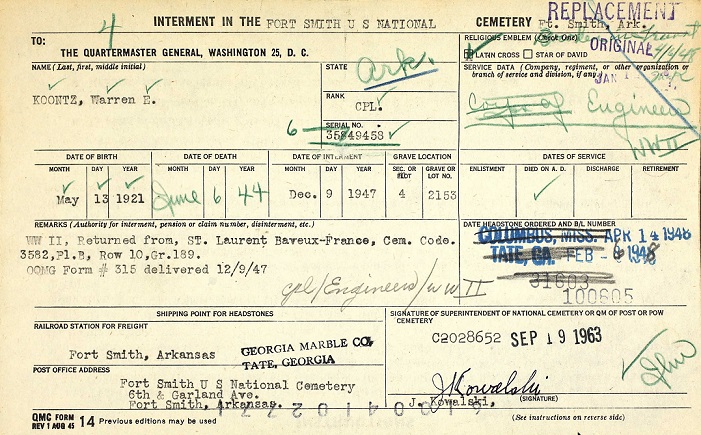 4
INTERMENT IN THE FORT SMITH U S NATIONAL CEMETERY Ft. Smith, Ark.
REPLACEMENT
TO:
THE QUARTERMASTER GENERAL, WASHINGTON 25, D. C.
RELIGIOUS EMBLEM (Check One)
LATIN CROSS STAR OF DAVID
ORIGINAL
NAME (Last, first, middle initial)
KOONTZ, Warren E.
STATE
Ark.
RANK
CPL.
SERIAL NO.
6 35849458
SERVICE DATA (Company, regiment, or other organization or
branch of service and division, if any)
JAN
Corps of Engineers
WW II
DATE OF BIRTH
MONTH DAY YEAR
May 13 1921
DATE OF DEATH
MONTH DAY YEAR
June 6 44
DATE OF INTERMENT
MONTH DAY YEAR
Dec. 9 1947
GRAVE LOCATION
SEC. OR PLOT GRAVE OR LOT NO.
4 2153
DATES OF SERVICE
ENLISTMENT DIED ON A. D. DISCHARGE RETIREMENT
REMARKS (Authority for interment, pension or claim number, disinterment, etc.)
WW II, Returned from, ST. Laurent Baveux-France, Cem. Code.
3582,Pl.B, Row 10,Gr.189.
OQMG Form # 315 delivered 12/9/47
cpl/Engineers/WW II
DATE HEADSTONE ORDERED AND B/L NUMBER
COLUMBUS, MISS. APR 14 1948
TATE, GA. FEB - 1948
31603
100605
SHIPPING POINT FOR HEADSTONES
RAILROAD STATION FOR FREIGHT
Fort Smith, Arkansas
GEORGIA MARBLE CO.
TATE, GEORGIA
POST OFFICE ADDRESS
Fort Smith U S National Cemetery
6th & Garland Ave.
Fort Smith, Arkansas.
SIGNATURE OF SUPERINTENDENT OF NATIONAL CEMETERY OR QM OF POST OR POW
CEMETERY
C2028652 SEP 19 1963
JKowalski
J. Kowalski, (SIGNATURE)
QMC FORM
REV 1 AUG 45 14 Previous editions may be used
(See instructions on reverse side)